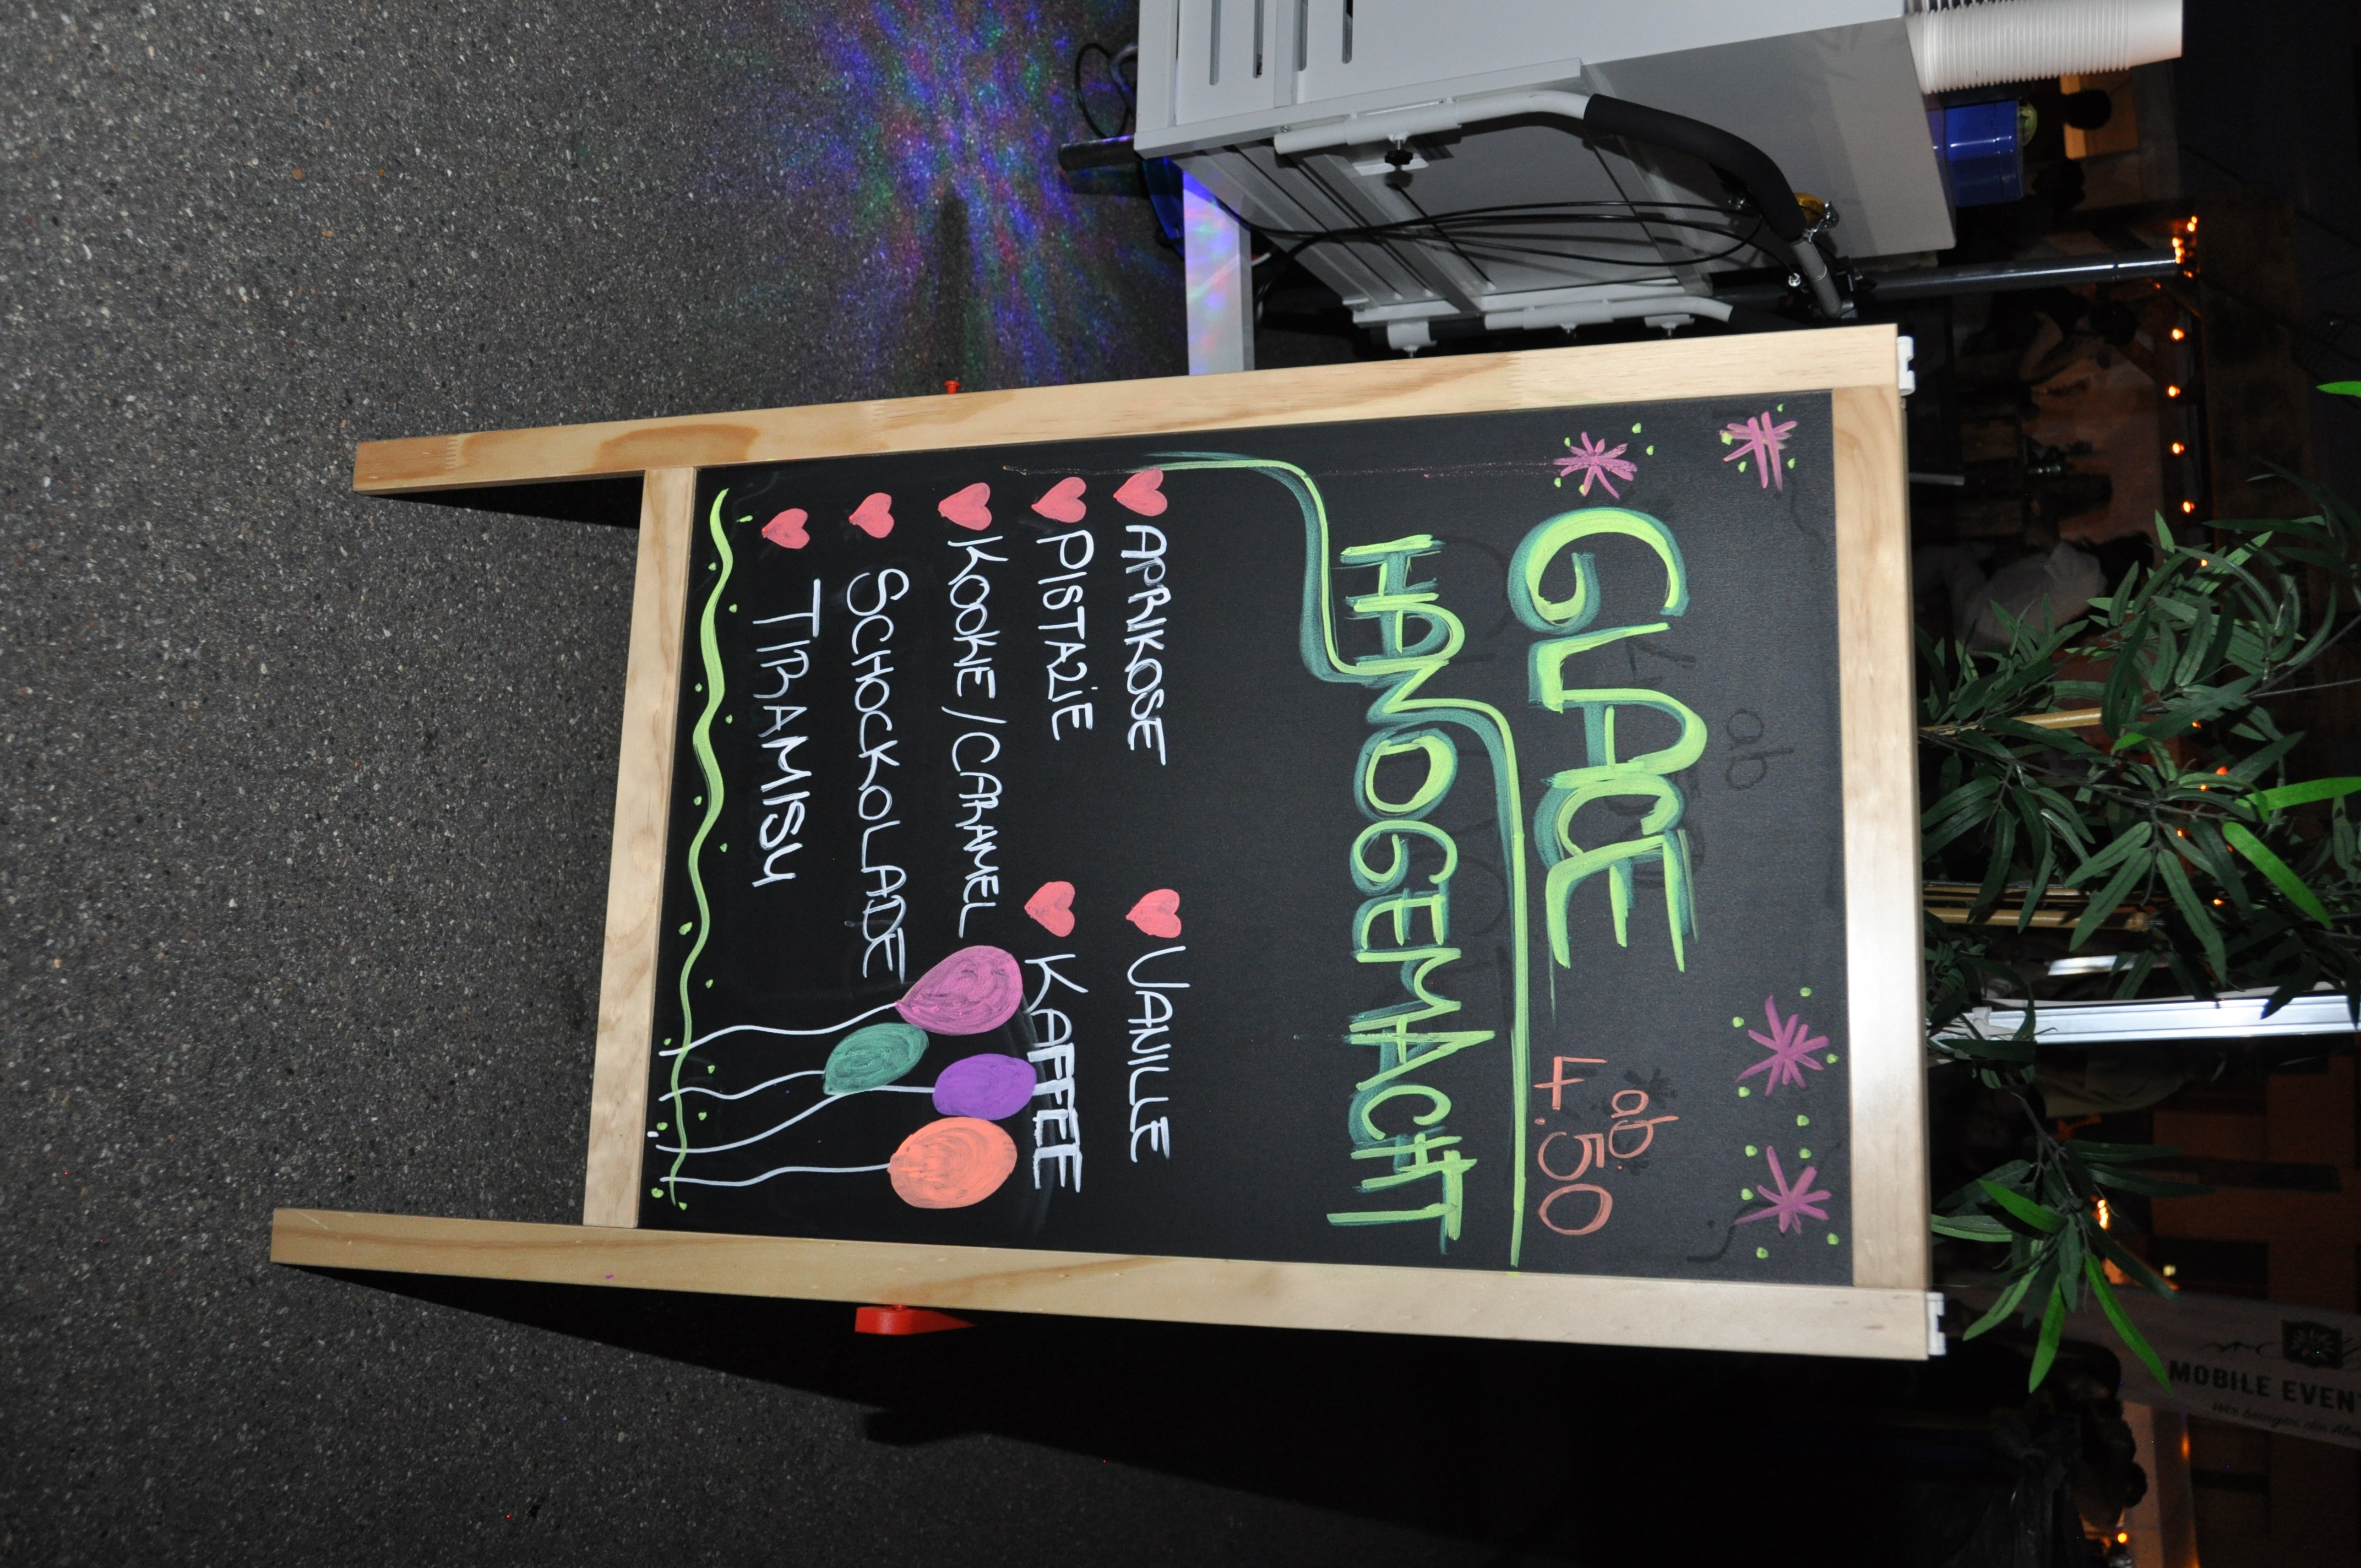 GLACE
ab
7.50
HANDGEMACHT
APRIKOSE VANILLE
PISTAZIE KAFFEE
KOOKIE/CARAMEL
SCHOCKOLADE
TIRAMISU
MOBILE EVEN